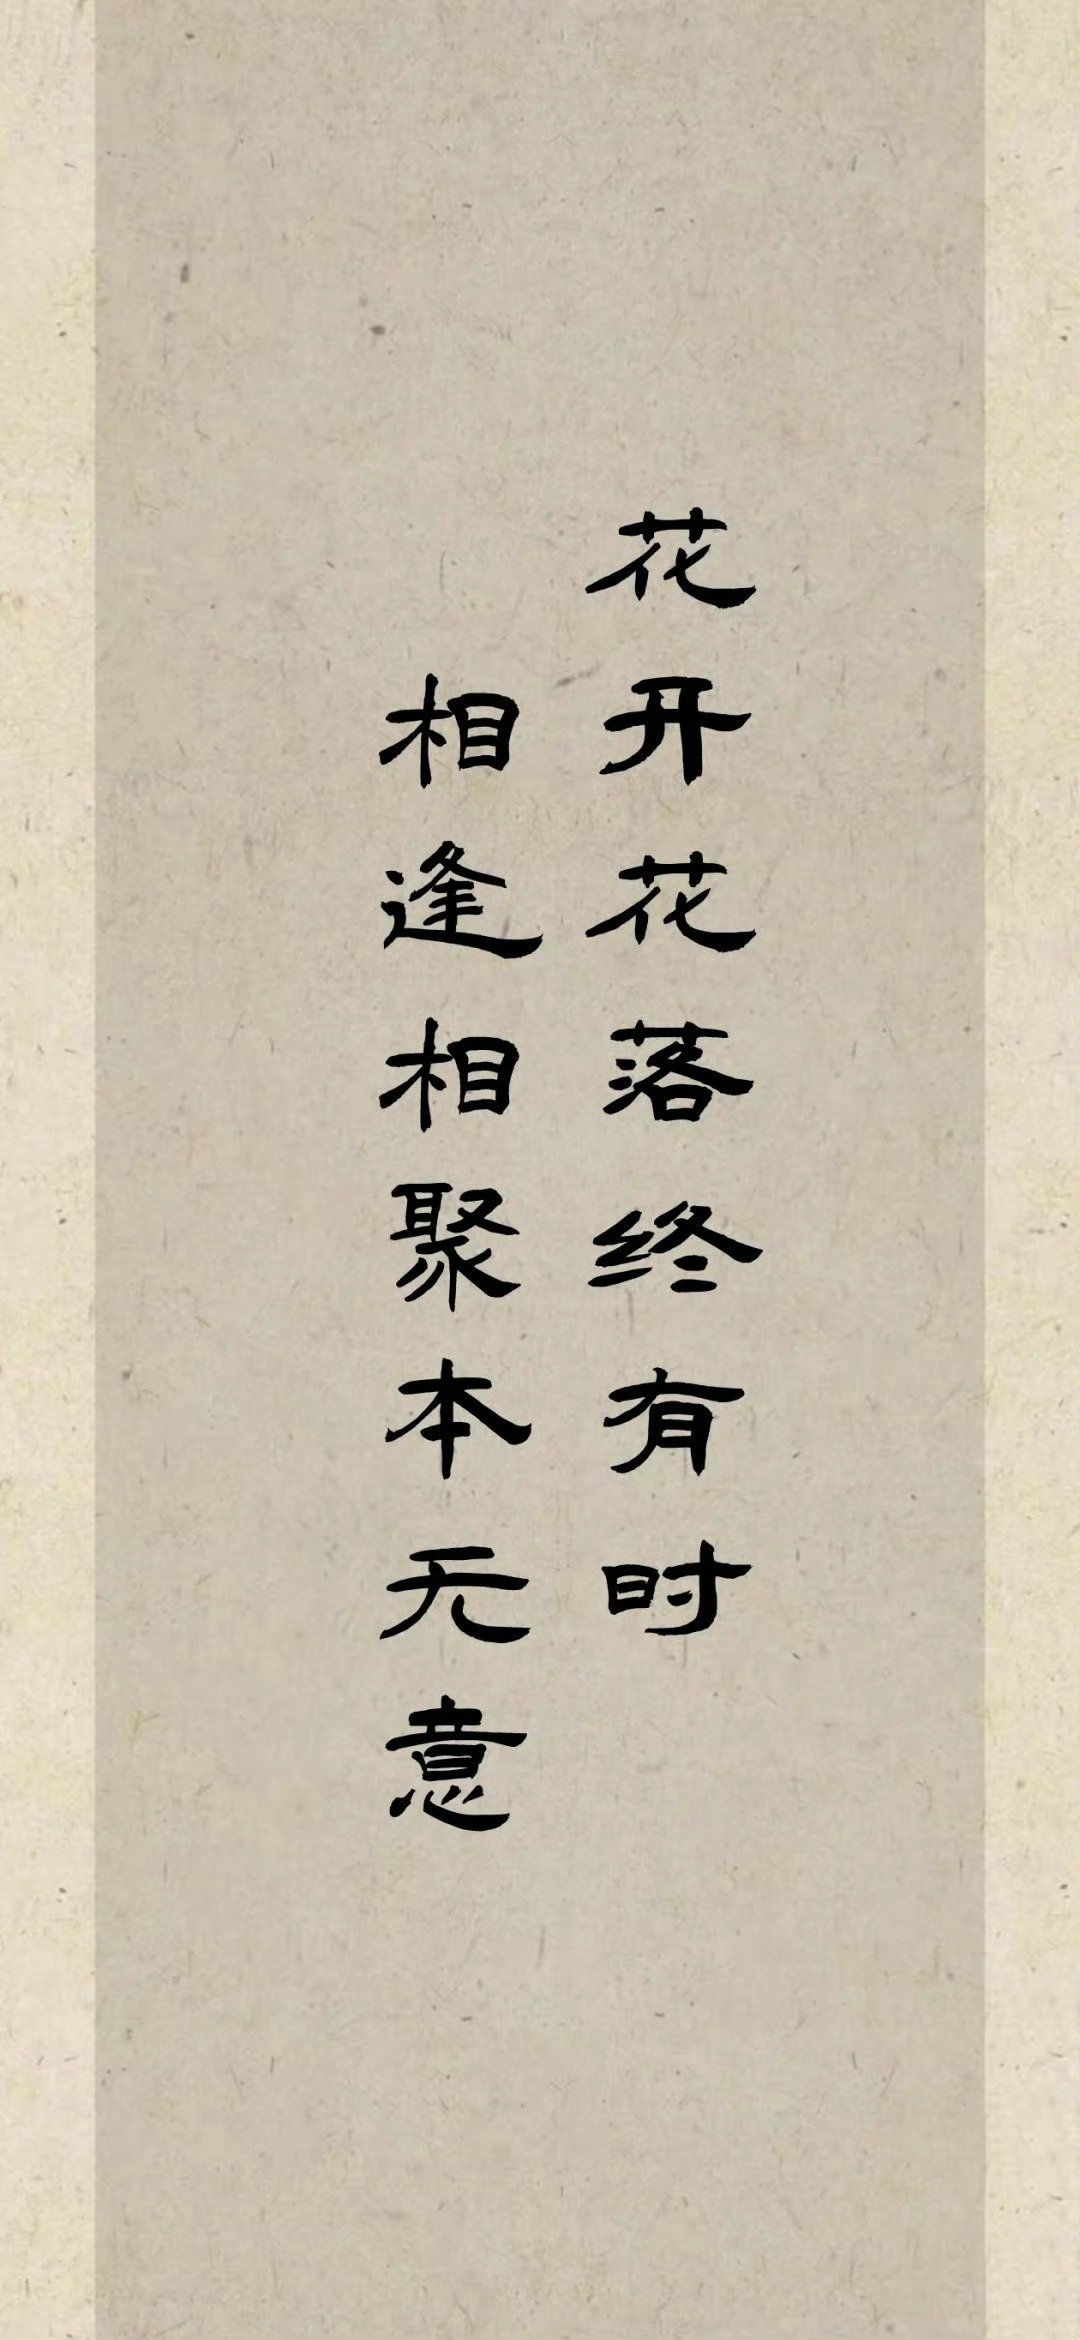 花开花落终有时
相逢相聚本无意